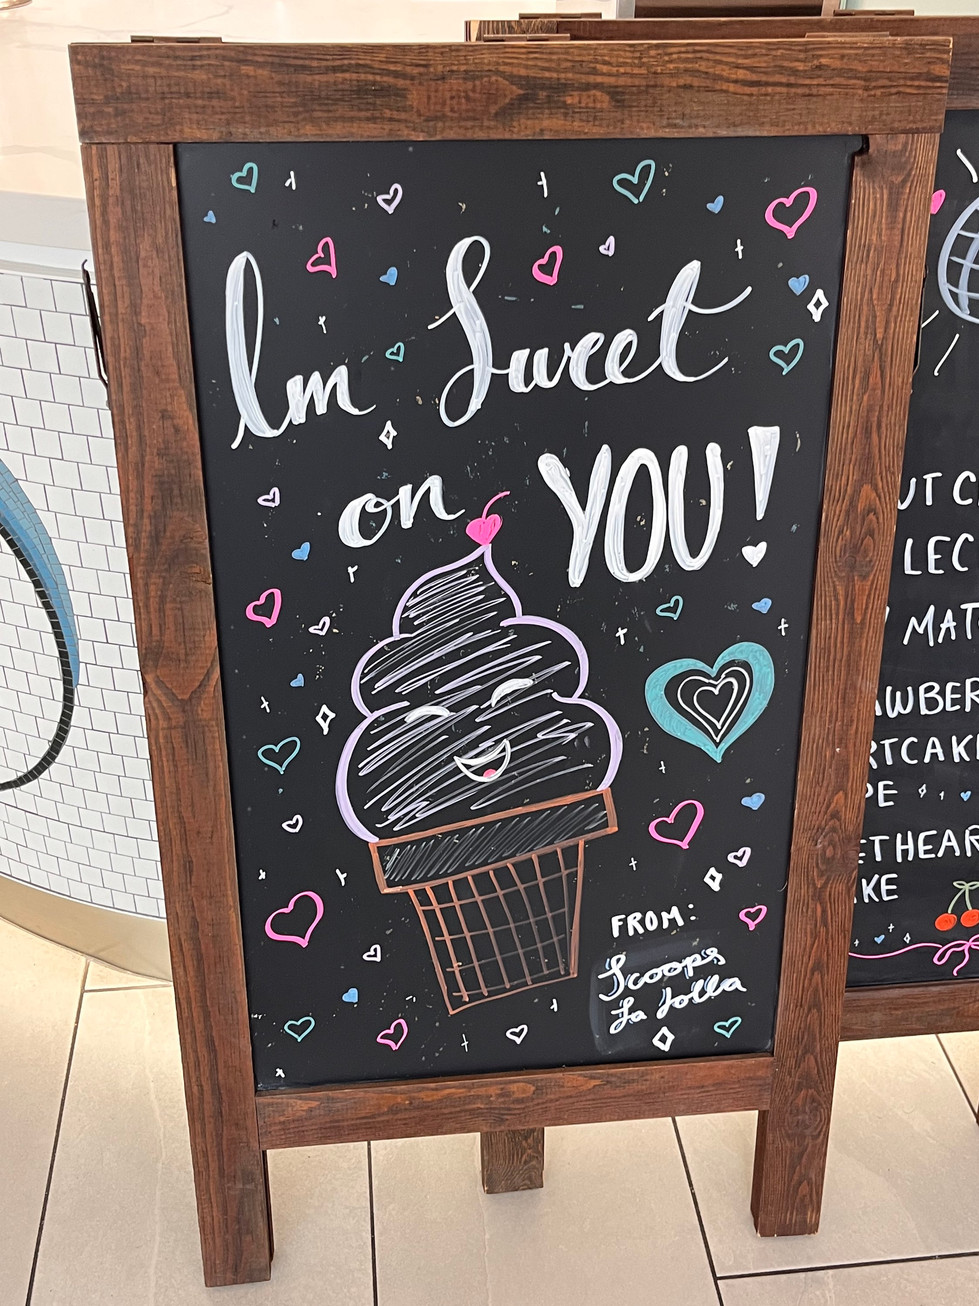 Im Sweet
on YOU!
FROM:
Scoops
La Jolla
UT C
LEC
MAT
AWBER
RTCAKE
PE
ETHEAR
KE